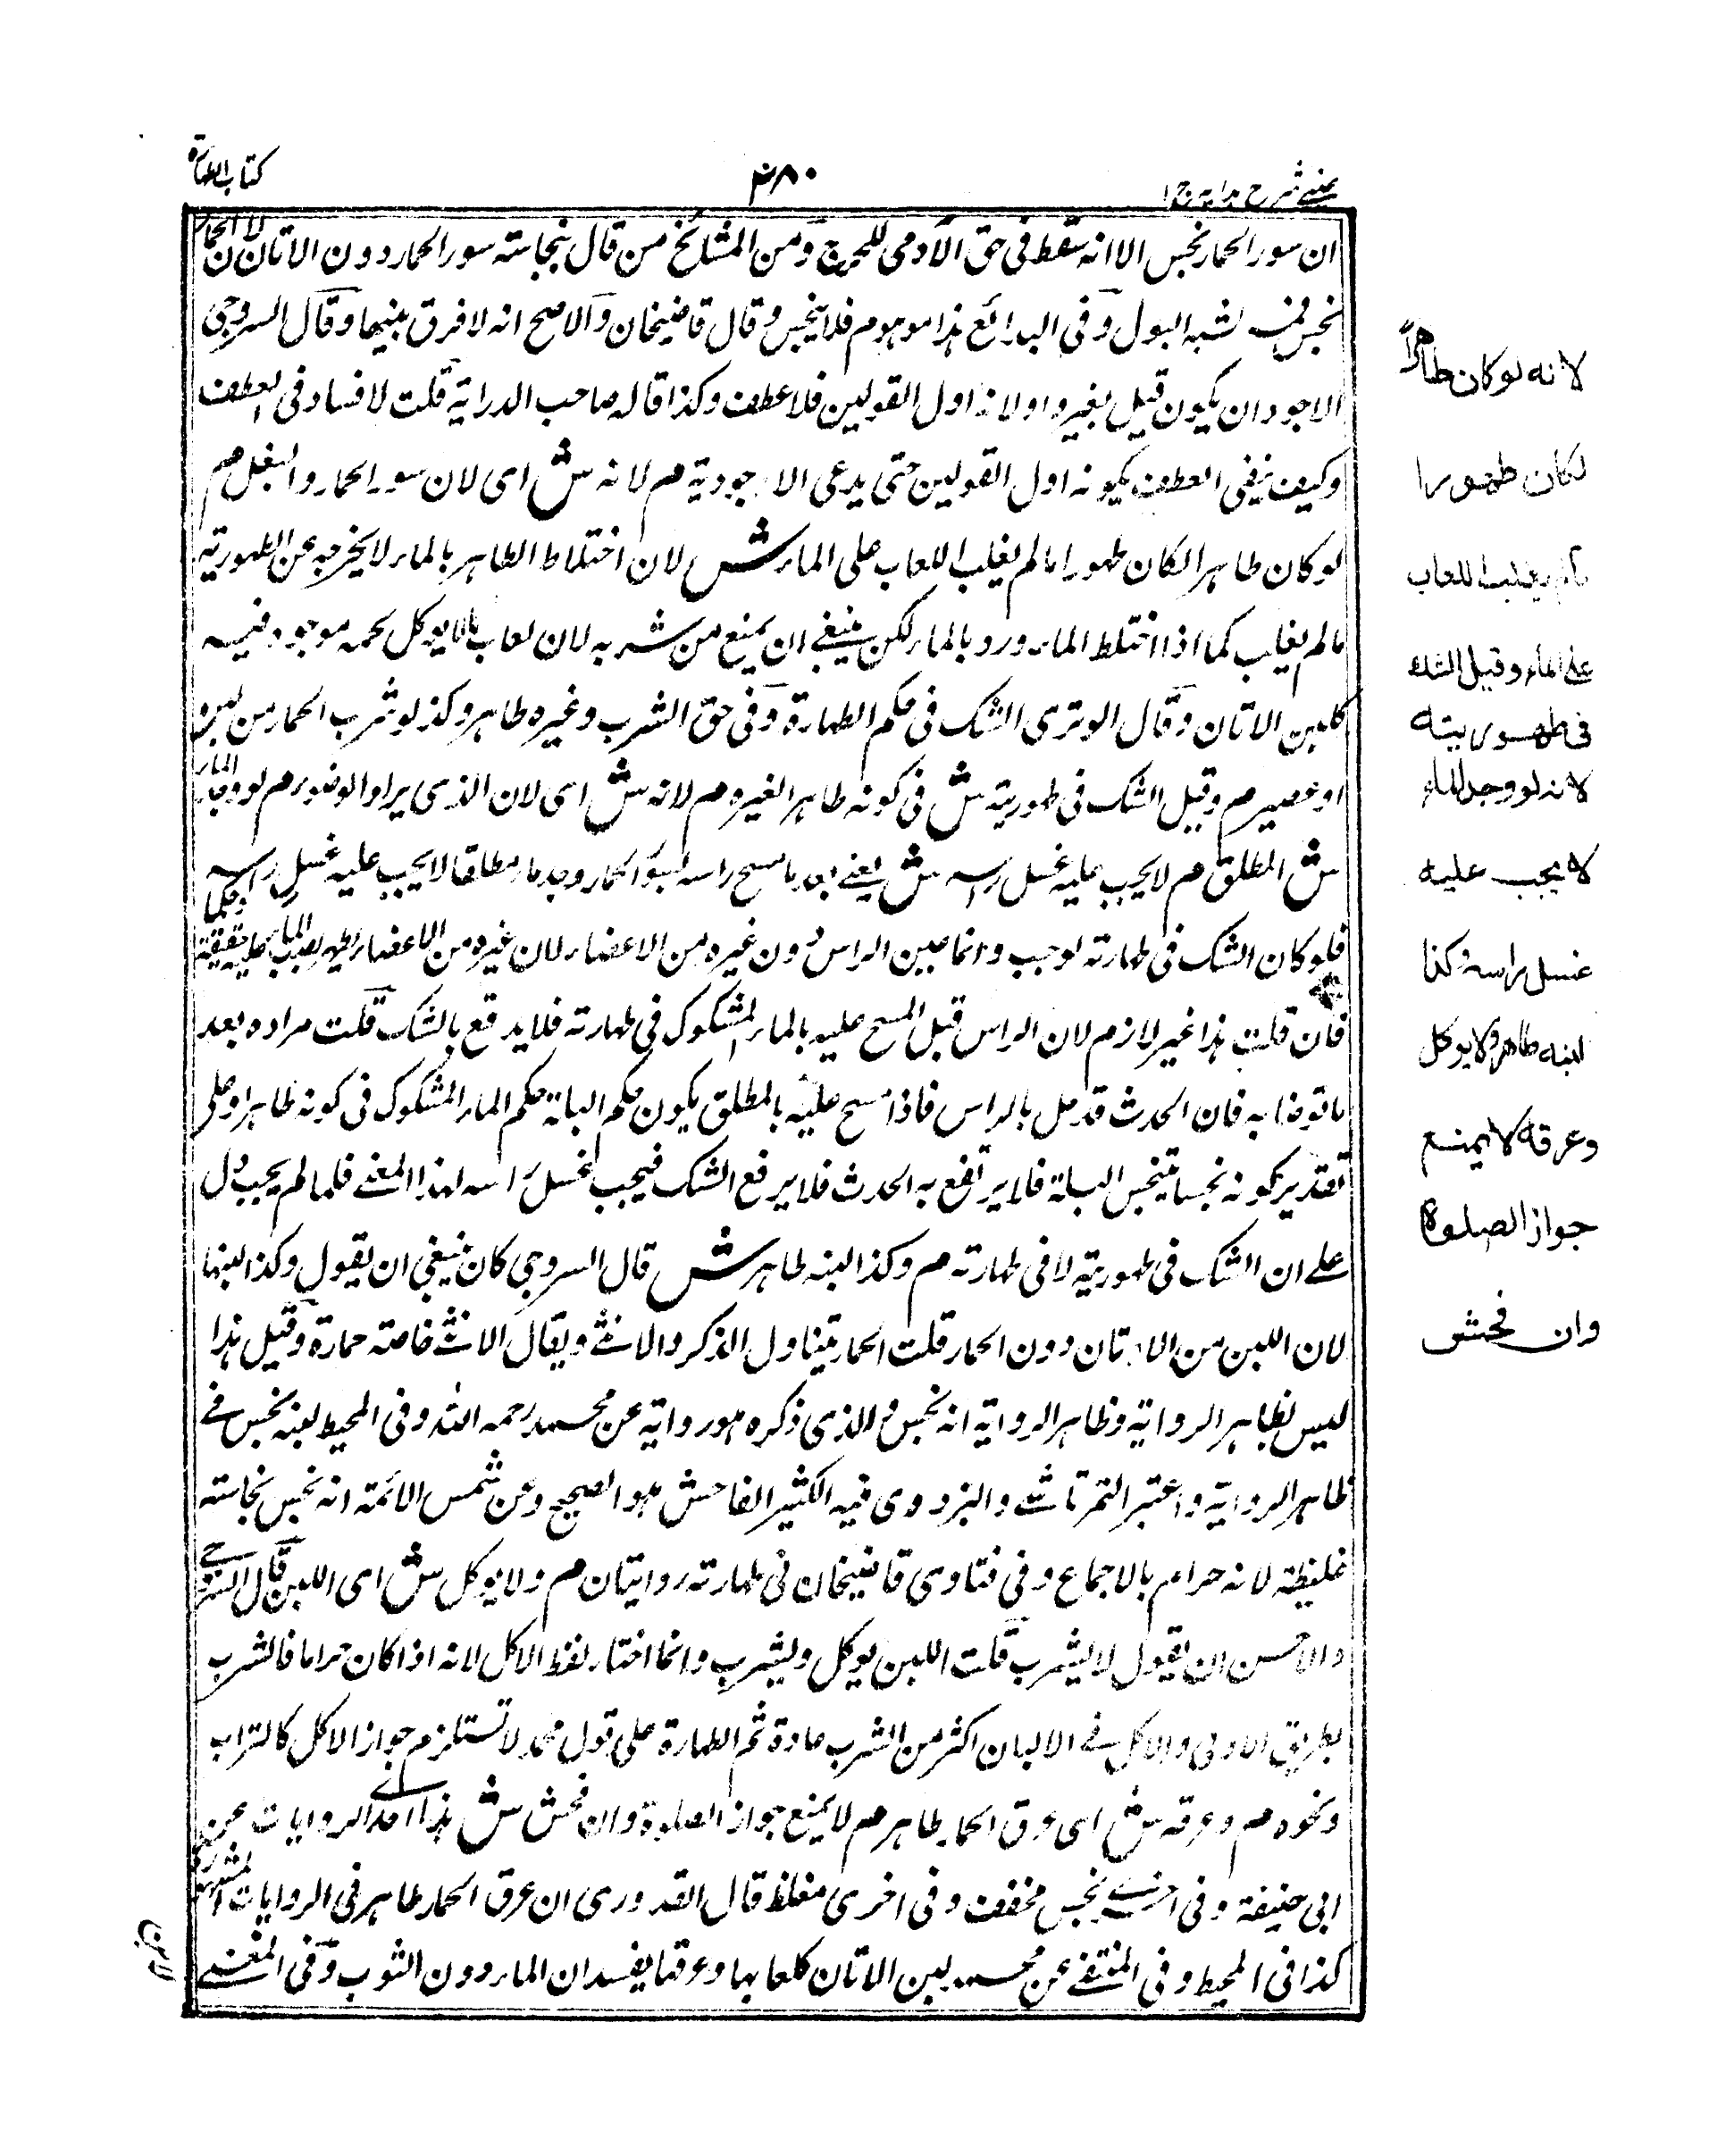 عینے شرح ہدایہ ج ا
۴۸۰
کتاب الطهارة
ان سور الحمار نجس الا انه سقط فی حق الآدمی للحرج و من المشائخ من قال بنجاسته سور الحمار دون الاتان لان الحمار
نجس فمه لشبه البول و فی البدائع هذا موهوم فلا ینجس و قال قاضیخان و الاصح انه لا فرق بینهما و قال السروجی
الاجود ان یکون قیل بغیر واو لانه اول القولین فلا عطف و کذا قاله صاحب الدرایة قلت لا فساد فی العطف
و کیف ینفی العطف بکونه اول القولین حتی یدعی الاجودیة م لانه ش ای لان سور الحمار و البغل م
لو کان طاهرا لکان طهورا ما لم یغلب اللعاب علی الماء ش لان اختلاط الطاهر بالماء لا یخرجه عن الطهوریة
ما لم یغلب کما اذا اختلط الماورد بالماء لکن ینبغی ان یمنع من شربه لان لعاب ما لا یوکل لحمه موجود فیه
کلبن الاتان و قال الوتری الشک فی حکم الطهارة و فی حق الشرب و غیره طاهر و کذا لو شرب الحمار من لبن
او عصیر م و قیل الشک فی طهوریته ش فی کونه طاهرا لغیره م لانه ش ای لان الذی یراد الوضوء م لو وجد الماء
ش المطلق م لا یجب علیه غسل راسه ش یعنی بعد ما مسح راسه بسور الحمار وجد ماء مطلقا لا یجب علیه غسل راسه
فلو کان الشک فی طهارته لوجب و انما عین الراس دون غیره من الاعضاء لان غیره من الاعضاء یطهر بصب الماء علیه
فان قلت هذا غیر لازم لان الراس قبل المسح علیه بالماء المشکوک فی طهارته فلا یدفع بالشک قلت مراده بعد
ما توضا به فان الحدث قد حل بالراس فاذا مسح علیه بالمطلق یکون حکم البلة حکم الماء المشکوک فی کونه طاهرا و علی
تقدیر کونه نجسا یتنجس البلة فلا یرتفع به الحدث فلا یرفع الشک فیجب غسل راسه لهذا المعنی فلما لم یجب دل
علی ان الشک فی طهوریته لا فی طهارته م و کذا لبنه طاهر ش قال السروجی کان ینبغی ان یقول و کذا لبنها
لان اللبن من الاتان دون الحمار قلت الحمار یتناول الذکر و الانثی و یقال الانثی خاصة حمارة و قیل هذا
لیس بظاهر الروایة و ظاهر الروایة انه نجس و الذی ذکره هو روایة عن محمد رحمه الله و فی المحیط لبنه نجس فی
ظاهر الروایة و اعتبر التمرتاشی و البزدوی فیه الکثیر الفاحش هو الصحیح و عن شمس الائمة انه نجس نجاسته
غلیظة لانه حرام بالاجماع و فی فتاوی قاضیخان فی طهارته روایتان م و لا یوکل ش ای اللبن قال السروجی
و الاحسن ان یقول لا یشرب قلت اللبن یوکل و یشرب و انما اختار لفظ الاکل لانه اذا کان حراما فالشرب
بطریق الاولی و الاکل فی الالبان اکثر من الشرب عادة ثم الطهارة علی قول محمد لا تستلزم جواز الاکل کالتراب
و نحوه م و عرقه ش ای عرق الحمار طاهر م لا یمنع جواز الصلوة و ان فحش ش هذا احدی الروایات عن
ابی حنیفة و فی اخری نجس مخفف و فی اخری مغلظ قال القدوری ان عرق الحمار طاهر فی الروایات المشهورة
کذا فی المحیط و فی المنتقی عن محمد لبن الاتان کلعابها و عرقها یفسدان الماء دون الثوب و فی المغنی
لانه لو کان طاهراً
لکان طهورا
ما لم یغلب اللعاب
علی الماء و قیل الشک
فی طهوریته
لانه لو وجد الماء
لا یجب علیه
غسل راسه و کذا
لبنه طاهر و لا یوکل
و عرقه لا یمنع
جواز الصلوة
وان فحش